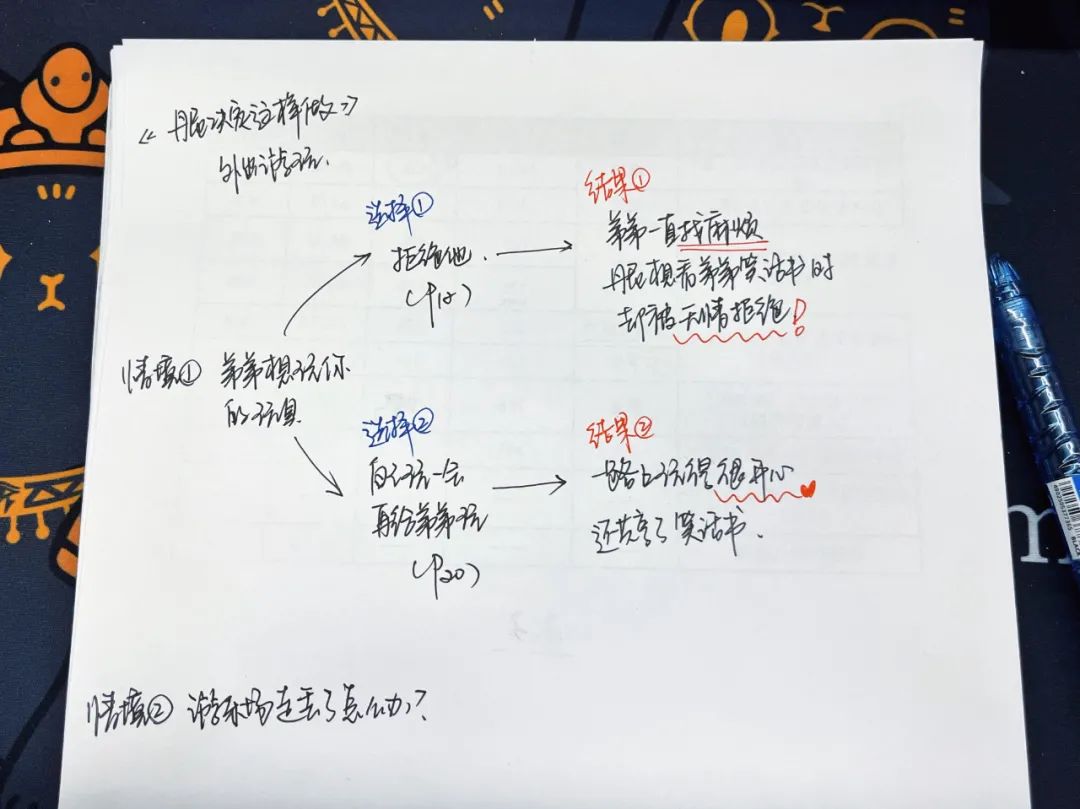 《丹尼决定这样做》
外出游玩.
选择①
拒绝他.
(P12)
结果①
弟弟一直找麻烦
丹尼想看弟弟笑话书时
却被无情拒绝!
情境① 弟弟想玩你
的玩具
选择②
自己玩一会
再给弟弟玩
(P20)
结果②
一路上玩得很开心
还共享了笑话书.
情境② 游乐场走丢了怎么办?